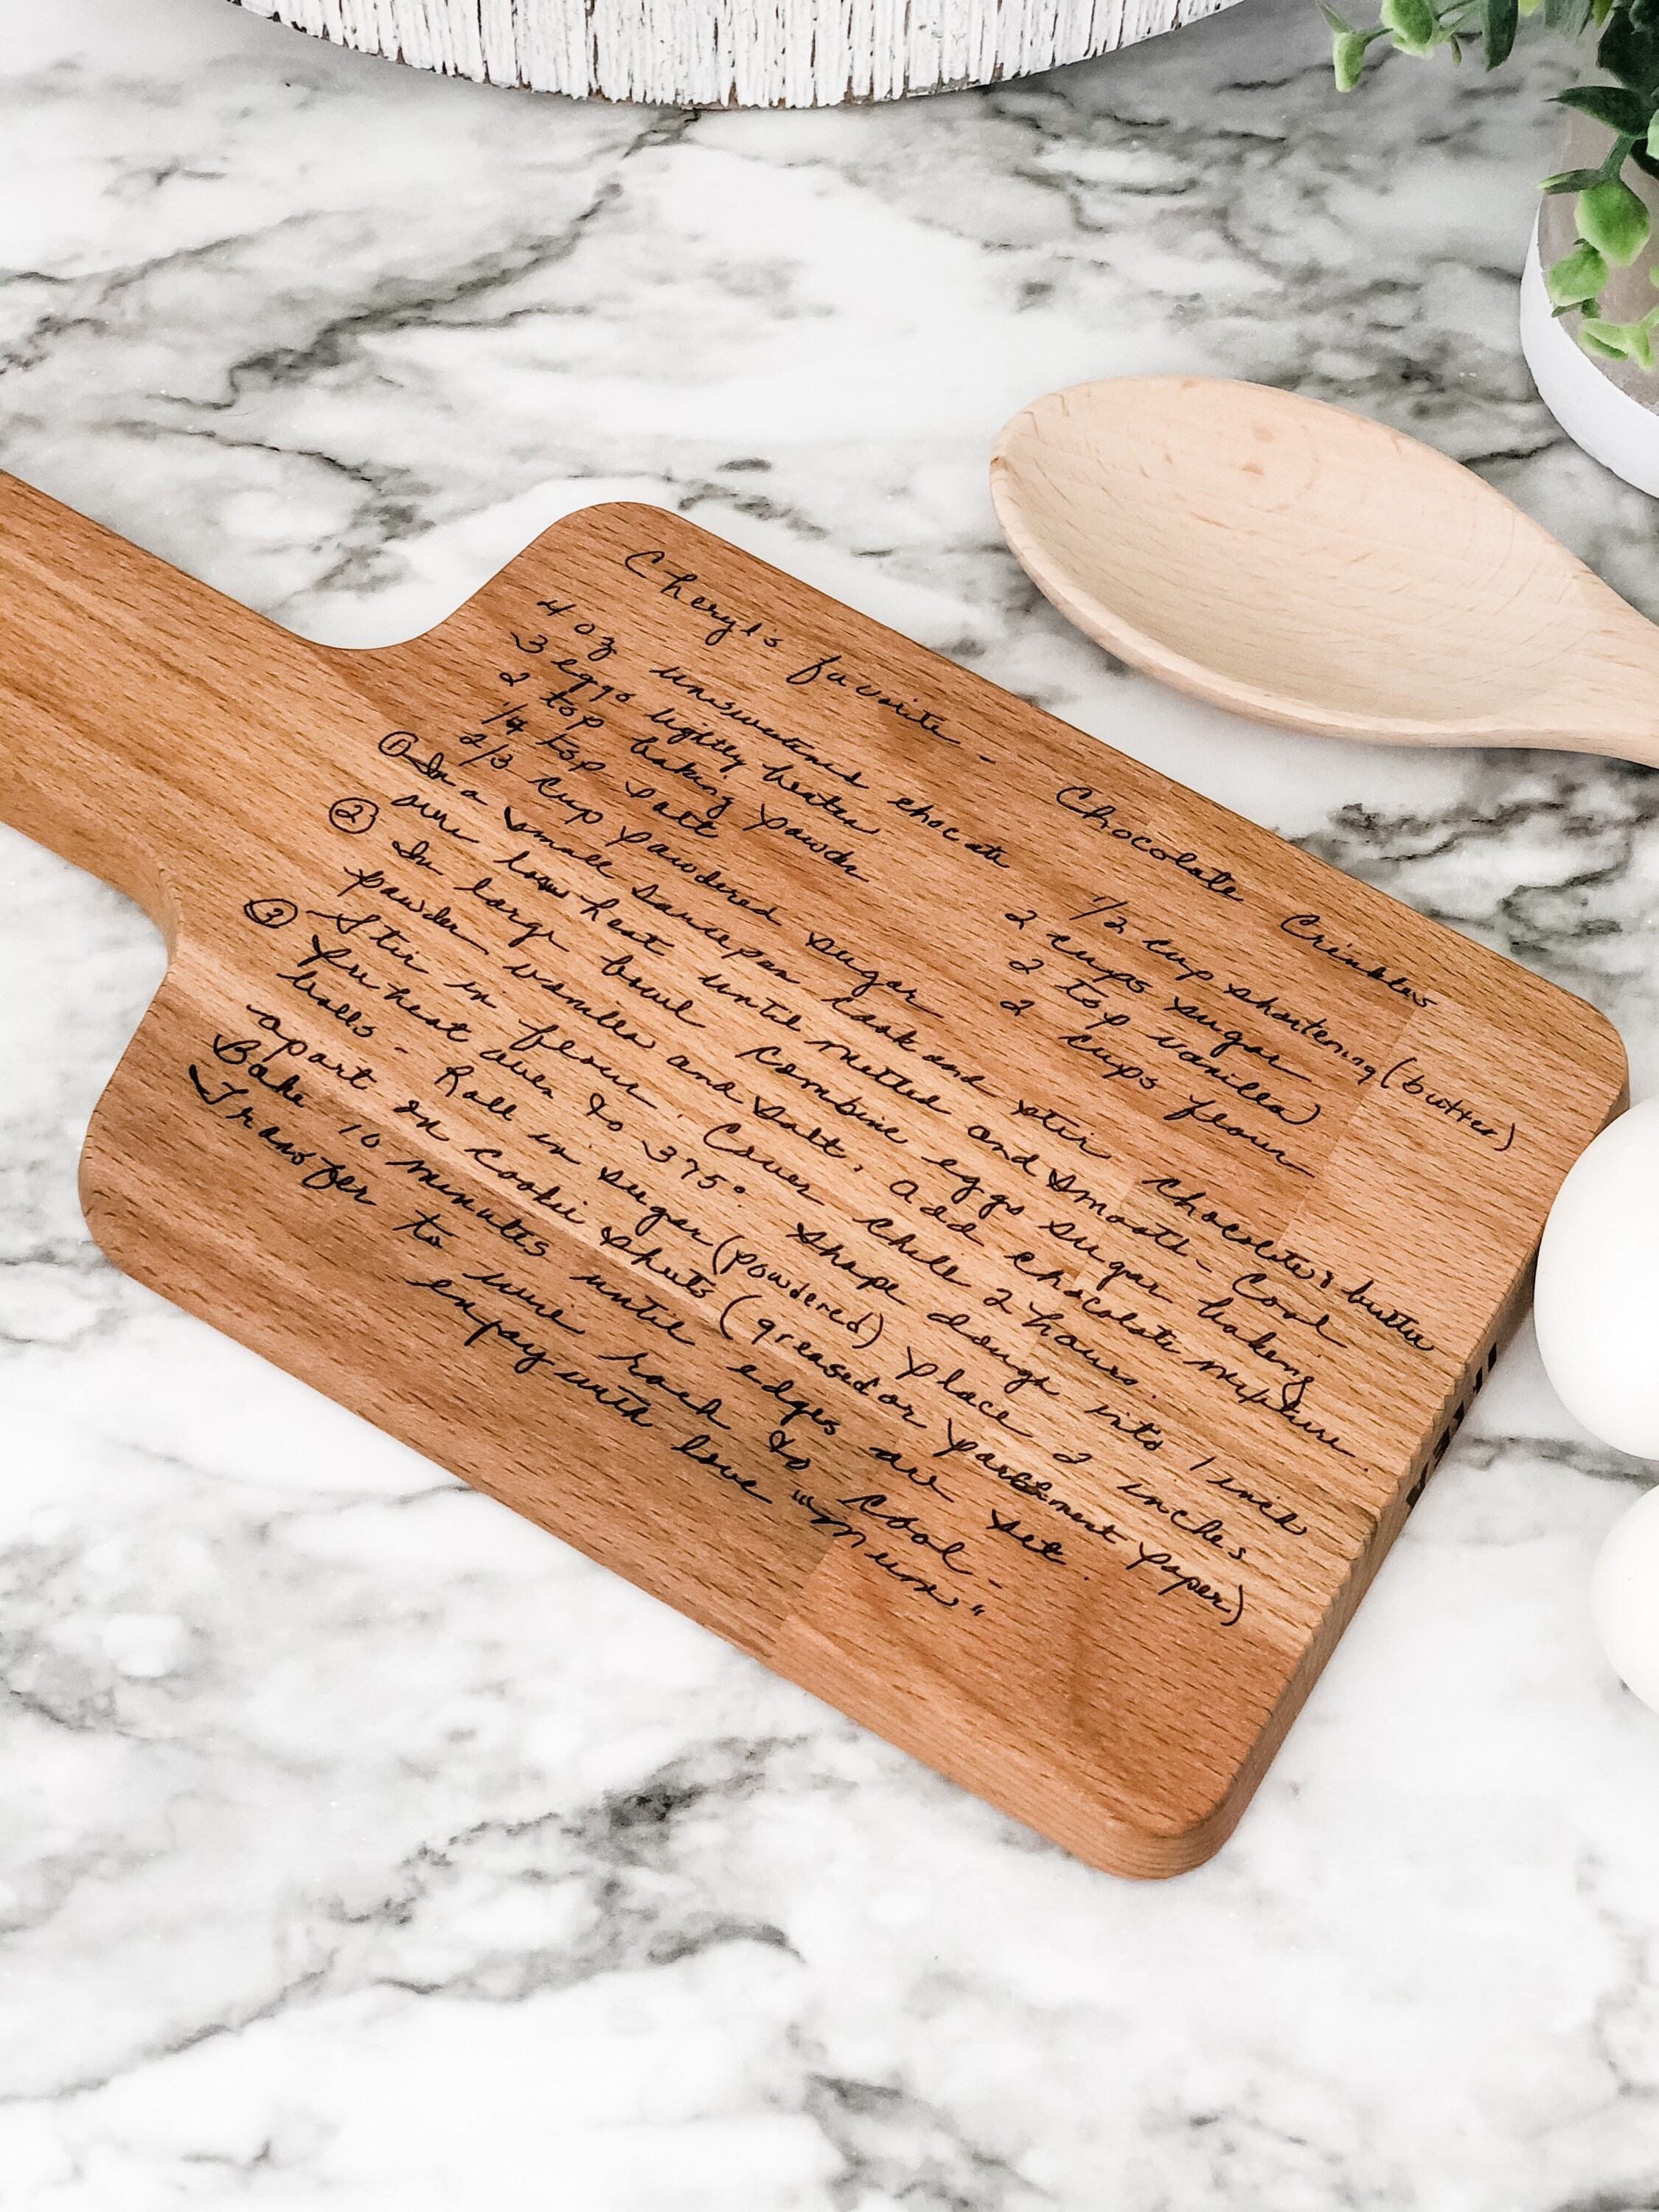 Cheryl's favorite - Chocolate Crinkles
4 oz unsweetened chocate 1/2 cup shortening (butter)
3 eggs lightly beaten 2 cups sugar
2 tsp baking powder 2 tsp vanilla
1/4 tsp salt 2 cups flour
2/3 cup powdered sugar
① In a small saucepan cook and stir chocolate & butter
over low heat until melted and smooth - Cool
② In large bowl combine eggs sugar baking
powder vanilla and salt. Add chocolate mixture.
Stir in flour. Cover chill 2 hours.
③ Preheat oven to 375° shape dough into 1 inch
balls - Roll in sugar (powdered) place 2 inches
apart on cookie sheets (greased or parchment paper)
Bake 10 minutes until edges are set.
Transfer to wire rack to cool -
enjoy with love "Mum"